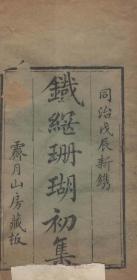 同治戊辰新鐫
鐵網珊瑚初集
霽月山房藏板